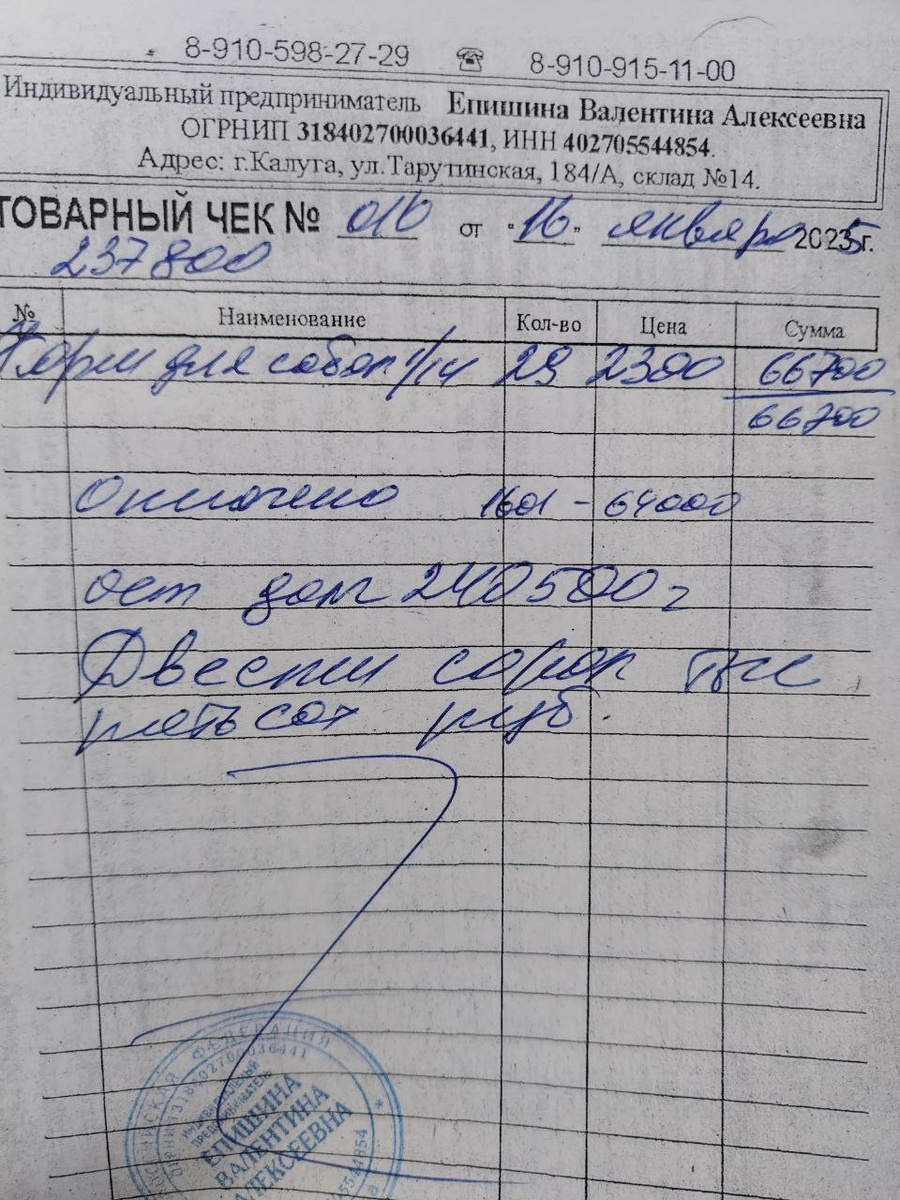 8-910-598-27-29 ☎ 8-910-915-11-00
Индивидуальный предприниматель Епишина Валентина Алексеевна
ОГРНИП 318402700036441, ИНН 402705544854.
Адрес: г.Калуга, ул.Тарутинская, 184/А, склад №14.
ТОВАРНЫЙ ЧЕК № 016 от "16" января 2025г.
237800
№ Наименование Кол-во Цена Сумма
Корм для собак 29 2300 66700
66700
Оплачено 1601 - 64000
ост долг 240500
Двести сорок тыс
пятьсот руб.
ФЕДЕРАЦИЯ
318402700036441
ИНДИВИДУАЛЬНЫЙ
ПРЕДПРИНИМАТЕЛЬ
ЕПИШИНА
ВАЛЕНТИНА
АЛЕКСЕЕВНА